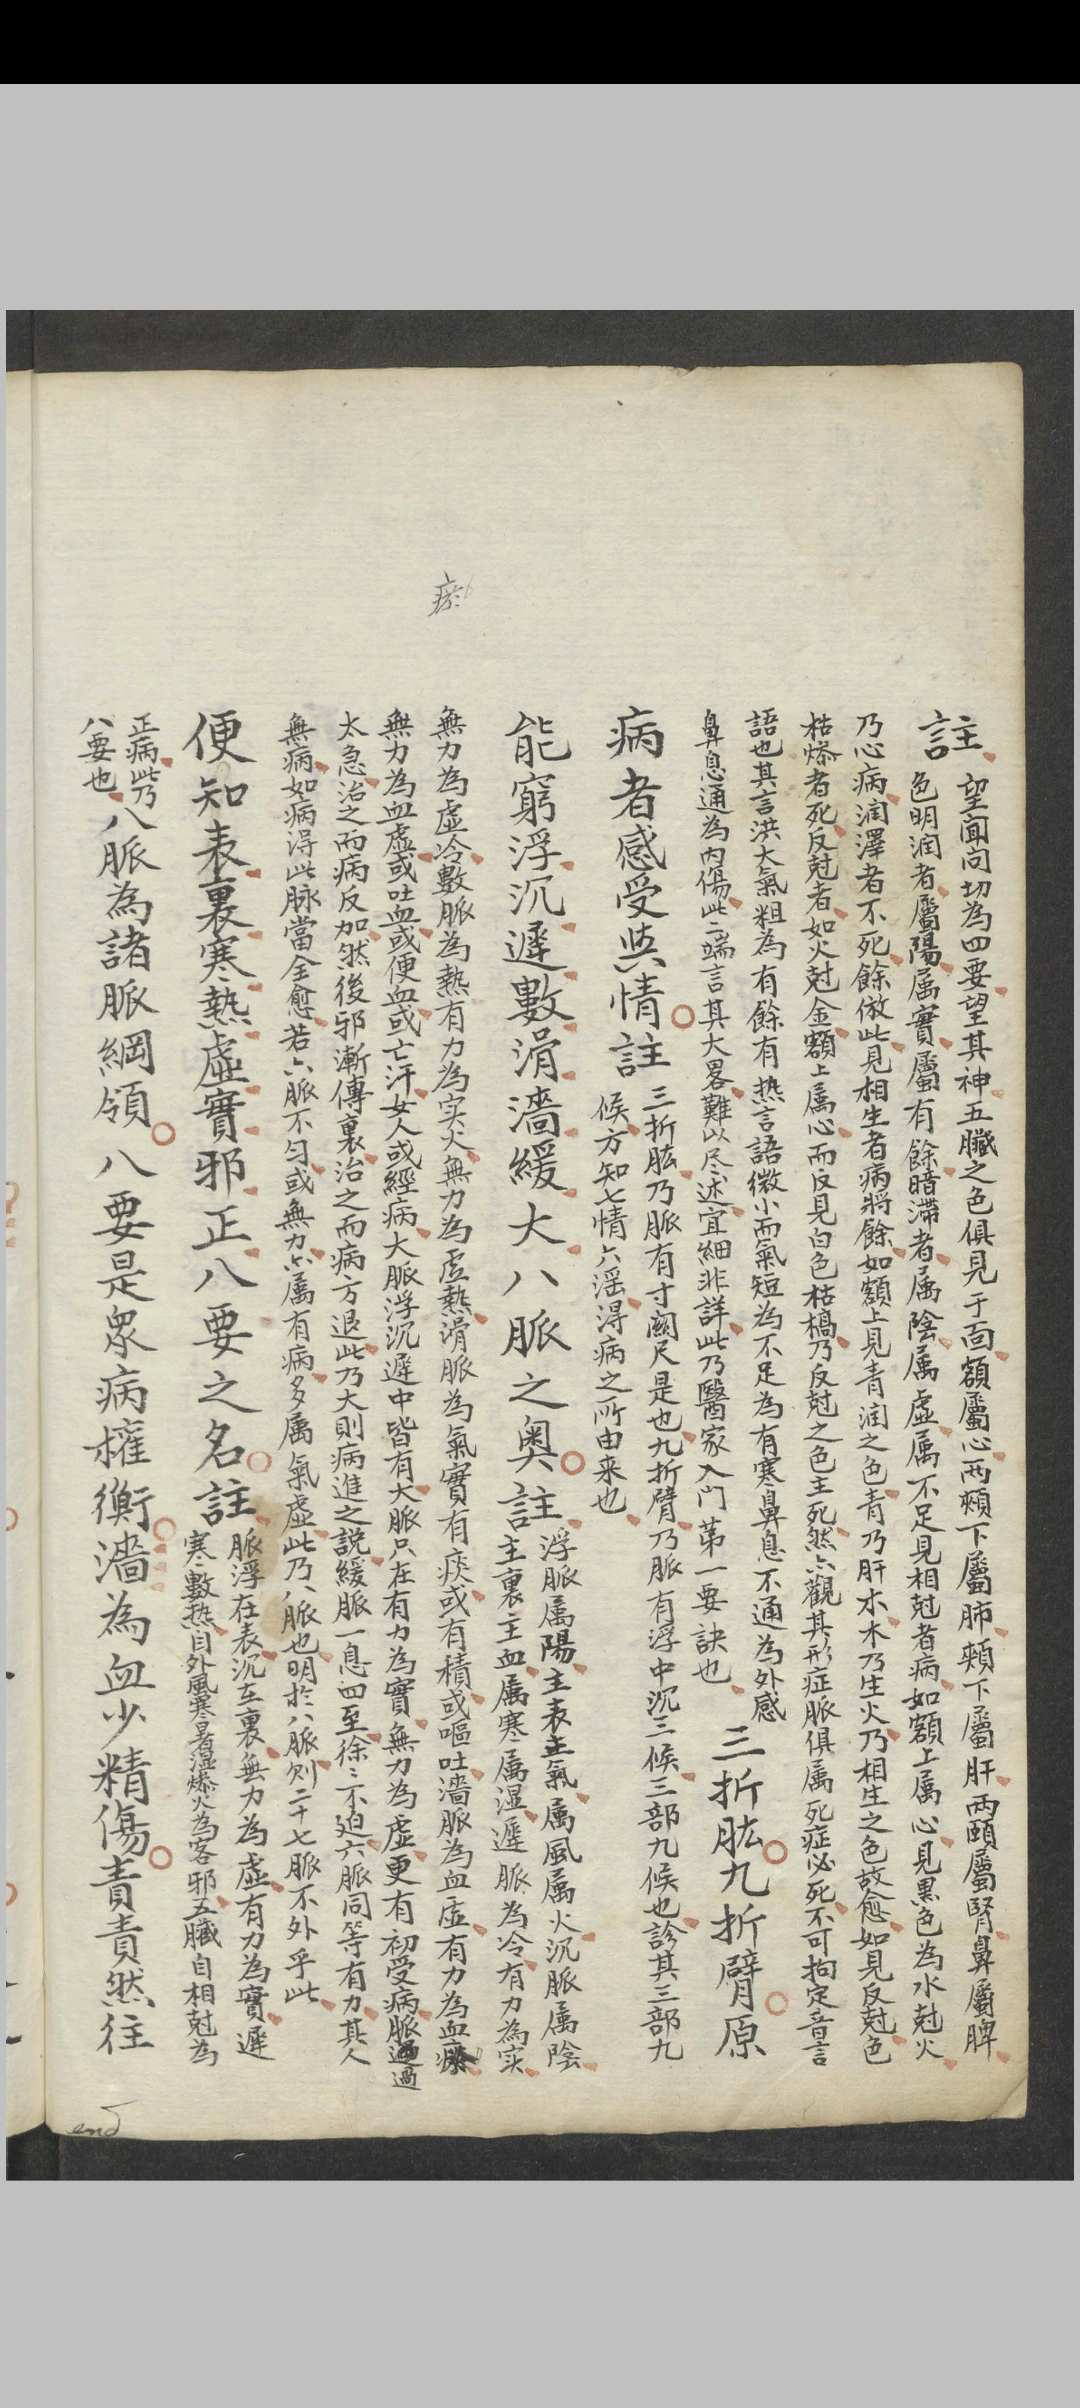 註
望聞问切為四要望其神五臟之色俱見于面額屬心两頰下屬肺頰下屬肝两頤屬腎鼻屬脾
色明润者屬陽属實屬有餘暗滞者属陰属虚属不足見相尅者病如額上属心見黒色為水尅火
乃心病润澤者不死餘倣此見相生者病将餘如額上見青润之色青乃肝木木乃生火乃相生之色故愈如見反尅色
枯燥者死反尅者如火尅金額上属心而反見白色枯槁乃反尅之色主死然亦觀其形症脈俱属死症必死不可拘定音言
語也其言洪大氣粗為有餘有热言語微小而氣短為不足為有寒鼻息不通為外感
鼻息通為内傷此二端言其大畧難以尽述宜細非詳此乃醫家入门第一要訣也
三折肱九折臂原
病者感受与情註
三折肱乃脈有寸関尺是也九折臂乃脈有浮中沉三候三部九候也診其三部九
候方知七情六淫得病之所由来也
能窮浮沉遲數滑濇緩大八脈之奥註
浮脈属陽主表主氣属風属火沉脈属陰
主裏主血属寒属湿遲脈為冷有力為实
無力為虚冷數脈為熱有力為实火無力為虚熱滑脈為氣實有痰或有積或嘔吐濇脈為血虚有力為血瘀
無力為血虚或吐血或便血或亡汗女人或經病大脈浮沉遲中皆有大脈只在有力為實無力為虚更有初受病脈過
太急治之而病反加然後邪漸傳裏治之而病方退此乃大則病進之説緩脈一息四至徐々不迫六脈同等有力其人
無病如病得此脉當全愈若六脈不匀或無力亦属有病多属氣虚此乃八脈也明於八脈则二十七脈不外乎此
瘀
便知表裏寒熱虚實邪正八要之名註
脈浮在表沉在裏無力為虚有力為實遲
寒數热自外風寒暑湿燥火為客邪五臟自相尅為
正病此乃
八要也
八脈為諸脈綱領八要是眾病權衡濇為血少精傷責責然往
end